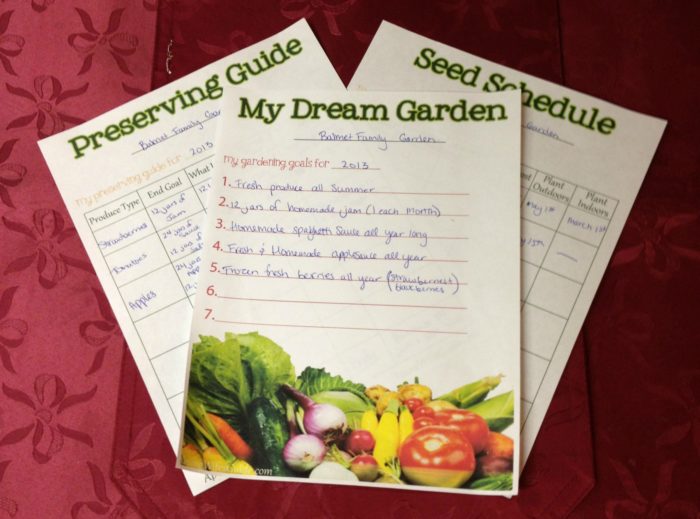 Preserving Guide
Balmet Family
my preserving guide for 2013
Produce Type
End Goal
What I
Strawberries
12 jars of
Jam
24 jars of
12 jars of
Apples
24 jars of
My Dream Garden
Balmet Family Garden
my gardening goals for 2013
1. Fresh produce all Summer
2. 12 jars of homemade jam (1 each month)
3. Homemade spaghetti sauce all year long
4. Fresh & Homemade applesauce all year
5. Frozen fresh berries all year (strawberries &
6.
7.
Seed Schedule
Garden
Plant
Outdoors
Plant
Indoors
May 1st
March 1st